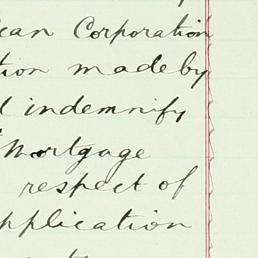 ican Corporation
tion made by
d indemnify
Mortgage
respect of
pplication